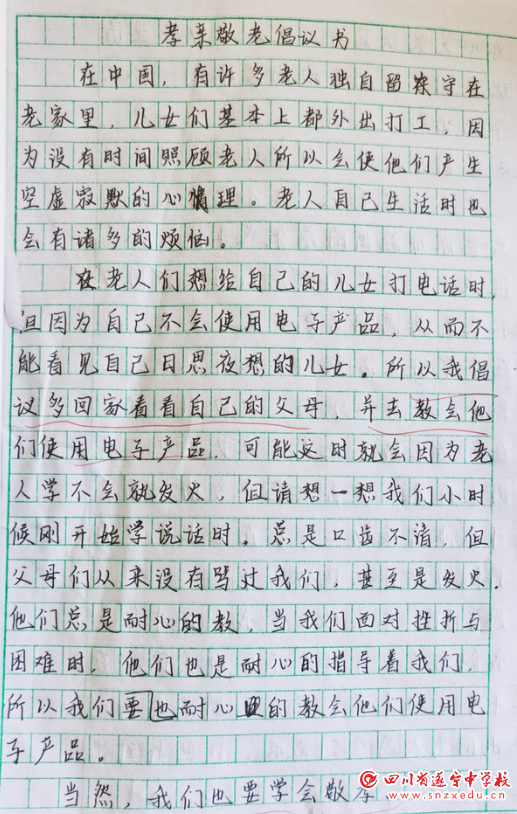 孝亲敬老倡议书
在中国，有许多老人独自留守在
老家里，儿女们基本上都外出打工，因
为没有时间照顾老人所以会使他们产生
空虚寂默的心理。老人自己生活时也
会有诸多的烦恼。
在老人们想给自己的儿女打电话时，
但因为自己不会使用电子产品，从而不
能看见自己日思夜想的儿女。所以我倡
议多回家看看自己的父母，并去教会他
们使用电子产品，可能这时就会因为老
人学不会就发火，但请想一想我们小时
候刚开始学说话时，总是口齿不清，但
父母们从来没有骂过我们，甚至是发火。
他们总是耐心的教，当我们面对挫折与
困难时，他们也是耐心的指导着我们，
所以我们要也耐心的教会他们使用电
子产品。
当然，我们也要学会敬孝
四川省遂宁中学校
www.snzxedu.cn